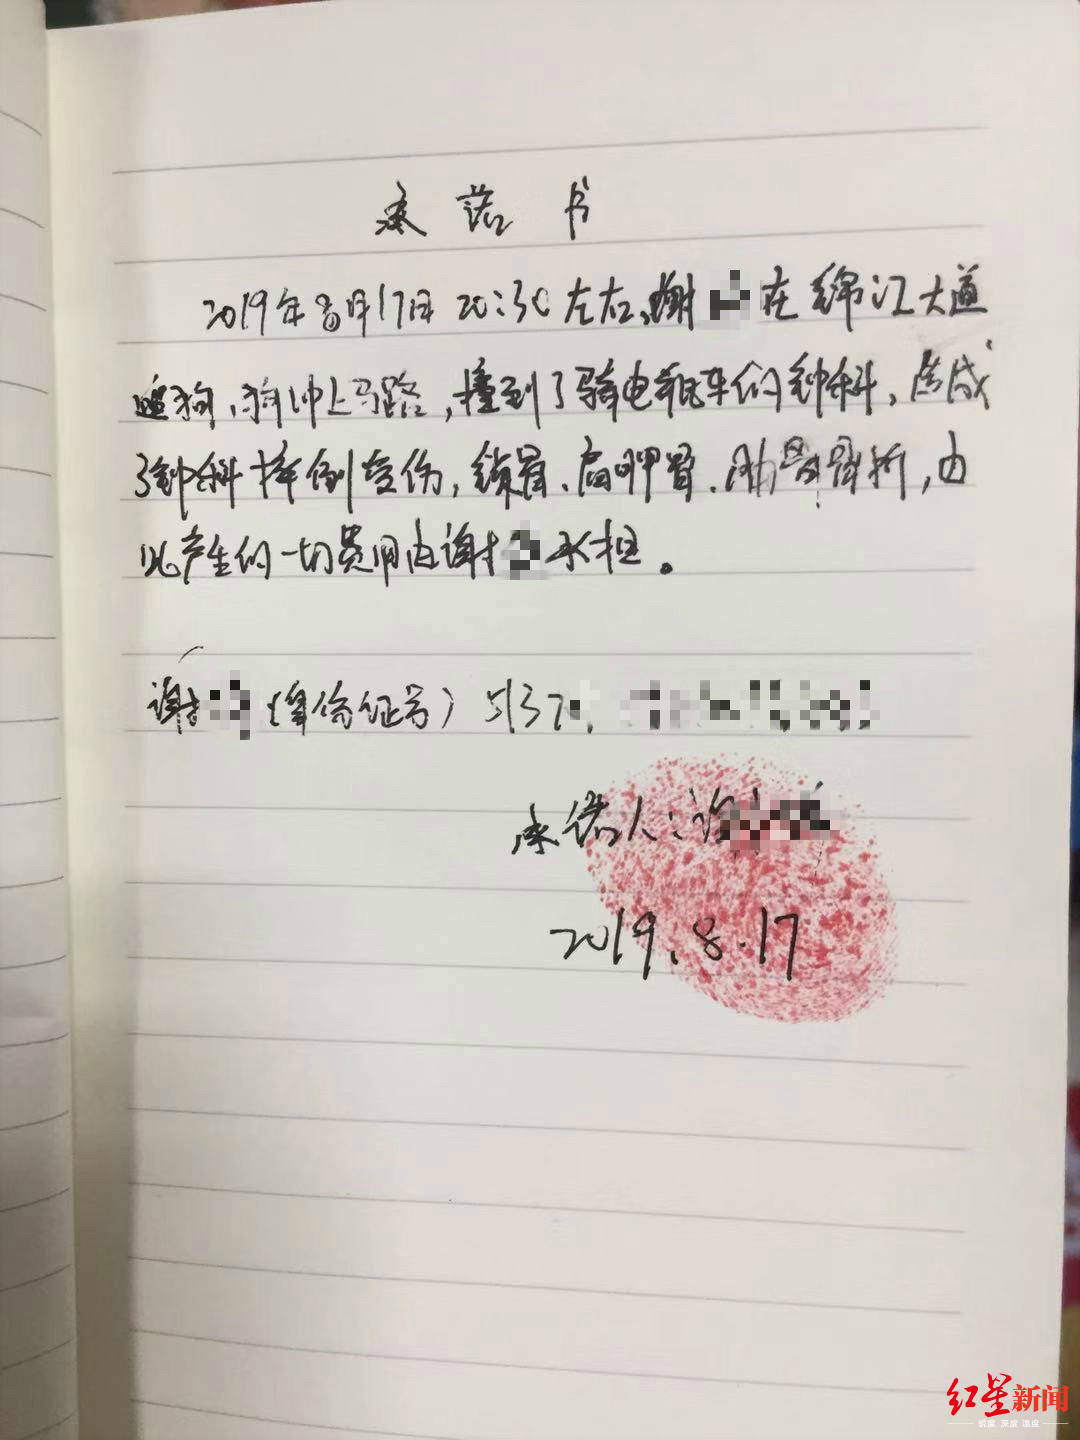 承诺书
2019年8月17日 20:30左右,谢 在锦江大道
遛狗,狗冲上马路,撞到了骑电瓶车的钟科,造成
了钟科摔倒受伤,锁骨、肩胛骨、肋骨骨折,由
此产生的一切费用由谢 承担。
谢 (身份证号)513
承诺人:谢
2019.8.17
红星新闻
锐度 深度 温度